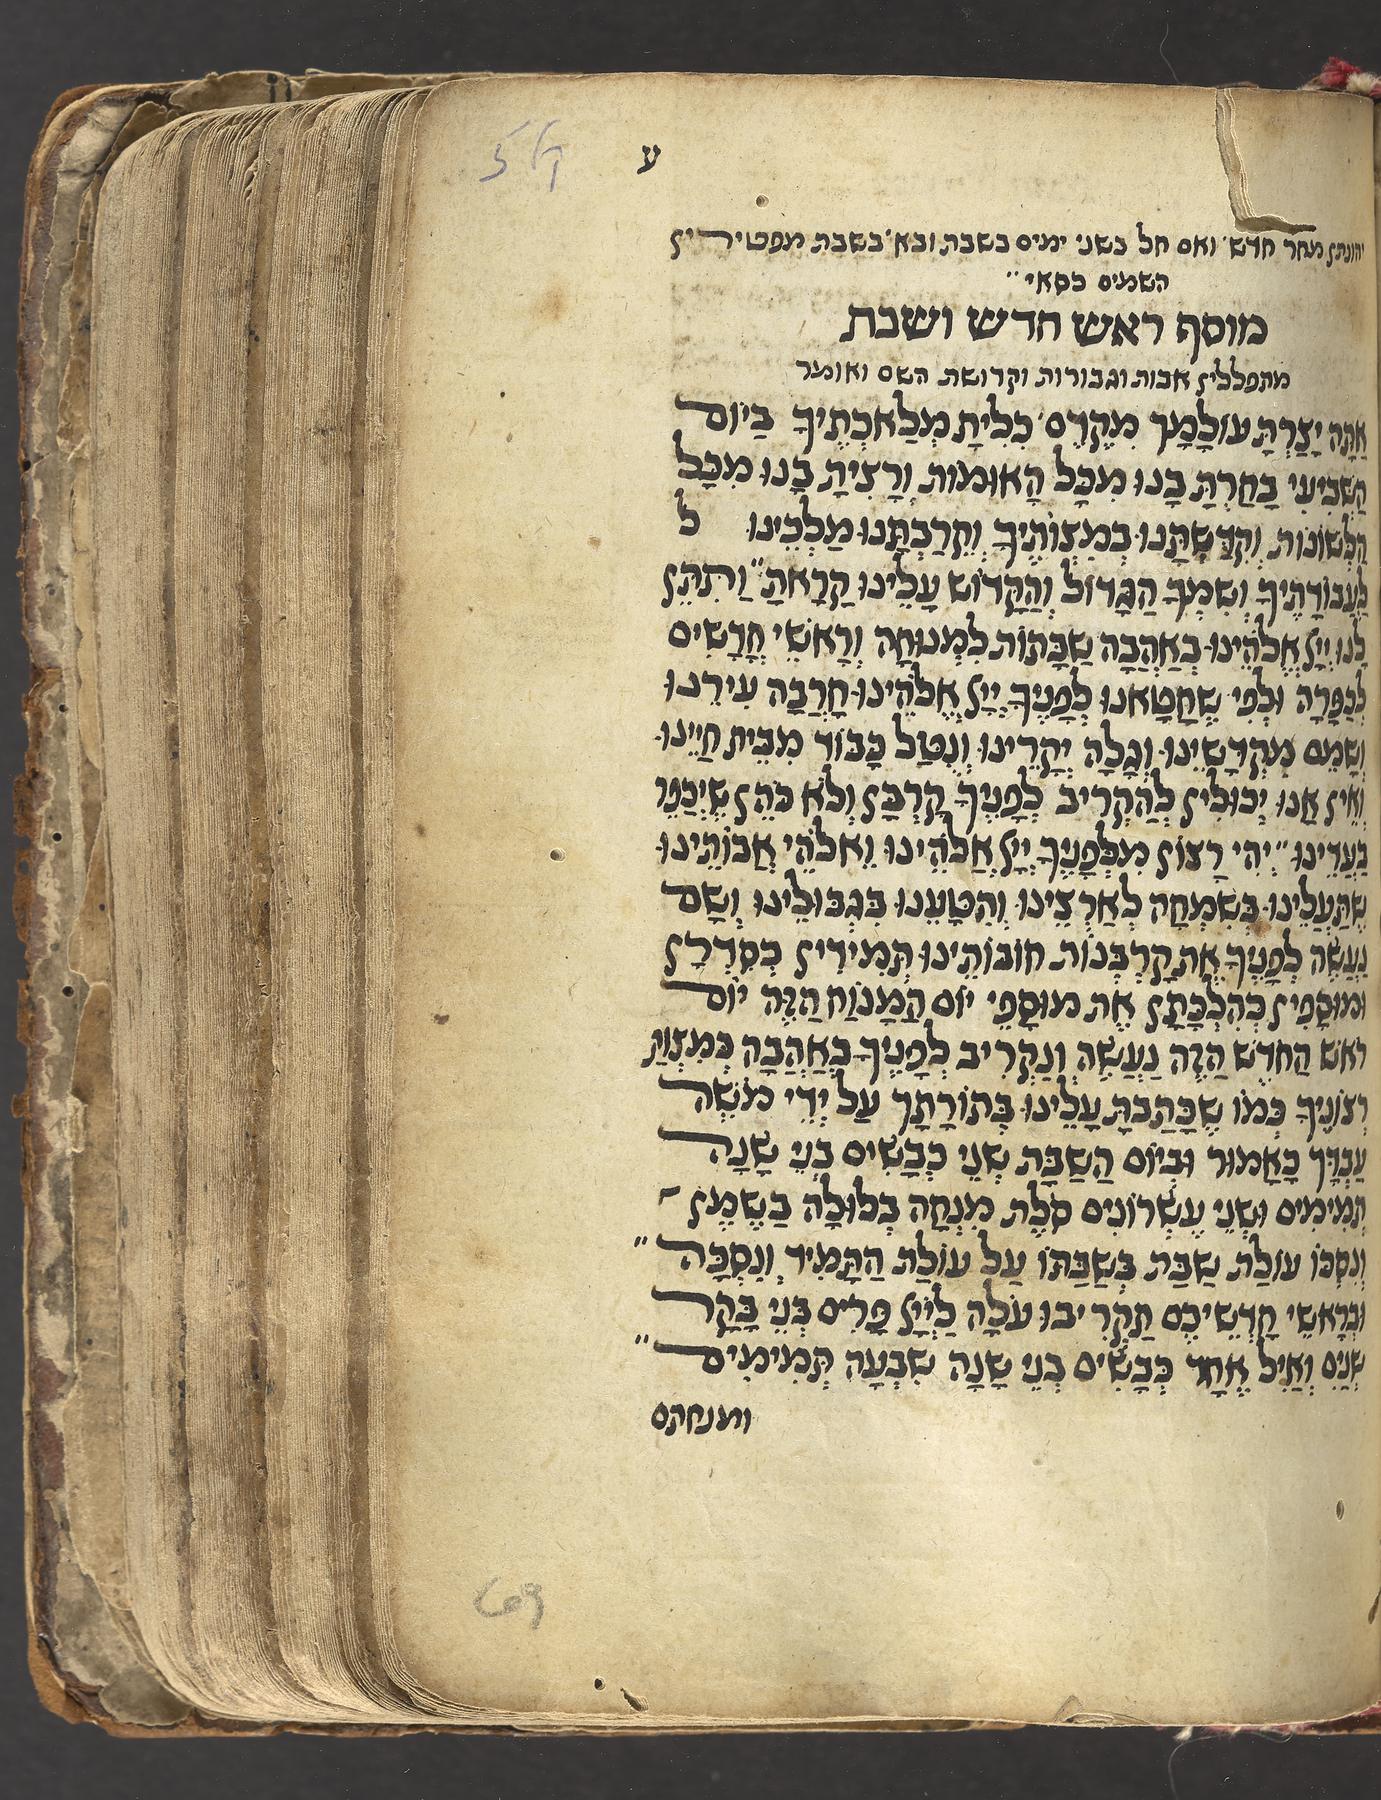 ע
יהונתן מחר חדש׳ ואם חל בשני ימים בשבת ובא׳ בשבת מפטירין
השמים כסאי״
מוסף ראש חדש ושבת
מתפללין אבות וגבורות וקדושת השם ואומר
אַתָּה יָצַרְתָּ עוֹלָמָךְ מִקֶּדֶם׳ כִּלִּיתָ מְלַאכְתֶּיךָ בַּיּוֹם
הַשְּׁבִיעִי בָּחַרְתָּ בָּנוּ מִכָּל הָאוּמּוֹת וְרָצִיתָ בָּנוּ מִכָּל
הַלְּשׁוֹנוֹת וְקִדַּשְׁתָּנוּ בְּמִצְוֹתֶיךָ וְקֵרַבְתָּנוּ מַלְכֵּינוּ ל
לַעֲבוֹדָתֶיךָ וְשִׁמְךָ הַגָּדוֹל וְהַקָּדוֹשׁ עָלֵינוּ קָרָאתָ״ וַתִּתֵּן
לָנוּ יְיָ אֱלֹהֵינוּ בְּאַהֲבָה שַׁבָּתוֹת לִמְנוּחָה וְרָאשֵׁי חֳדָשִׁים
לְכַפָּרָה וּלְפִי שֶׁחָטָאנוּ לְפָנֶיךָ יְיָ אֱלֹהֵינוּ חָרְבָה עִירֵנוּ
וְשָׁמֵם מִקְדָּשֵׁינוּ וְגָלָה יְקָרֵינוּ וְנֻטַּל כָּבוֹד מִבֵּית חַיֵּינוּ
וְאֵין אָנוּ יְכוּלִין לְהַקְרִיב לְפָנֶיךָ קָרְבָּן וְלֹא כֹּהֵן שֶׁיְּכַפֵּר
בַּעֲדֵינוּ״ יְהִי רָצוֹן מִלְּפָנֶיךָ יְיָ אֱלֹהֵינוּ וֵאלֹהֵי אֲבוֹתֵינוּ
שֶׁתַּעֲלֵינוּ בְּשִׂמְחָה לְאַרְצֵינוּ וְתִטָּעֵנוּ בִּגְבוּלֵינוּ וְשָׁם
נַעֲשֶׂה לְפָנֶיךָ אֶת קָרְבְּנוֹת חוֹבוֹתֵינוּ תְּמִידִין כְּסִדְרָן
וּמוּסָפִין כְּהִלְכָתָן אֶת מוּסָפֵי יוֹם הַמָּנוֹחַ הַזֶּה יוֹם
רֹאשׁ הַחֹדֶשׁ הַזֶּה נַעֲשֶׂה וְנַקְרִיב לְפָנֶיךָ בְּאַהֲבָה כְּמִצְוַת
רְצוֹנֶיךָ כְּמוֹ שֶׁכָּתַבְתָּ עָלֵינוּ בְּתוֹרָתָךְ עַל יְדֵי מֹשֶׁה
עַבְדָּךְ כָּאָמוּר וּבְיוֹם הַשַּׁבָּת שְׁנֵי כְבָשִׂים בְּנֵי שָׁנָה
תְּמִימִים וּשְׁנֵי עֶשְׂרוֹנִים סֹלֶת מִנְחָה בְּלוּלָה בַשֶּׁמֶן
וְנִסְכּוֹ עוֹלַת שַׁבַּת בְּשַׁבַּתּוֹ עַל עוֹלַת הַתָּמִיד וְנִסְכָּהּ״
וּבְרָאשֵׁי חָדְשֵׁיכֶם תַּקְרִיבוּ עֹלָה לַיְיָ פָּרִים בְּנֵי בָקָר
שְׁנַיִם וְאַיִל אֶחָד כְּבָשִׂים בְּנֵי שָׁנָה שִׁבְעָה תְּמִימִים״
ומנחתם
69